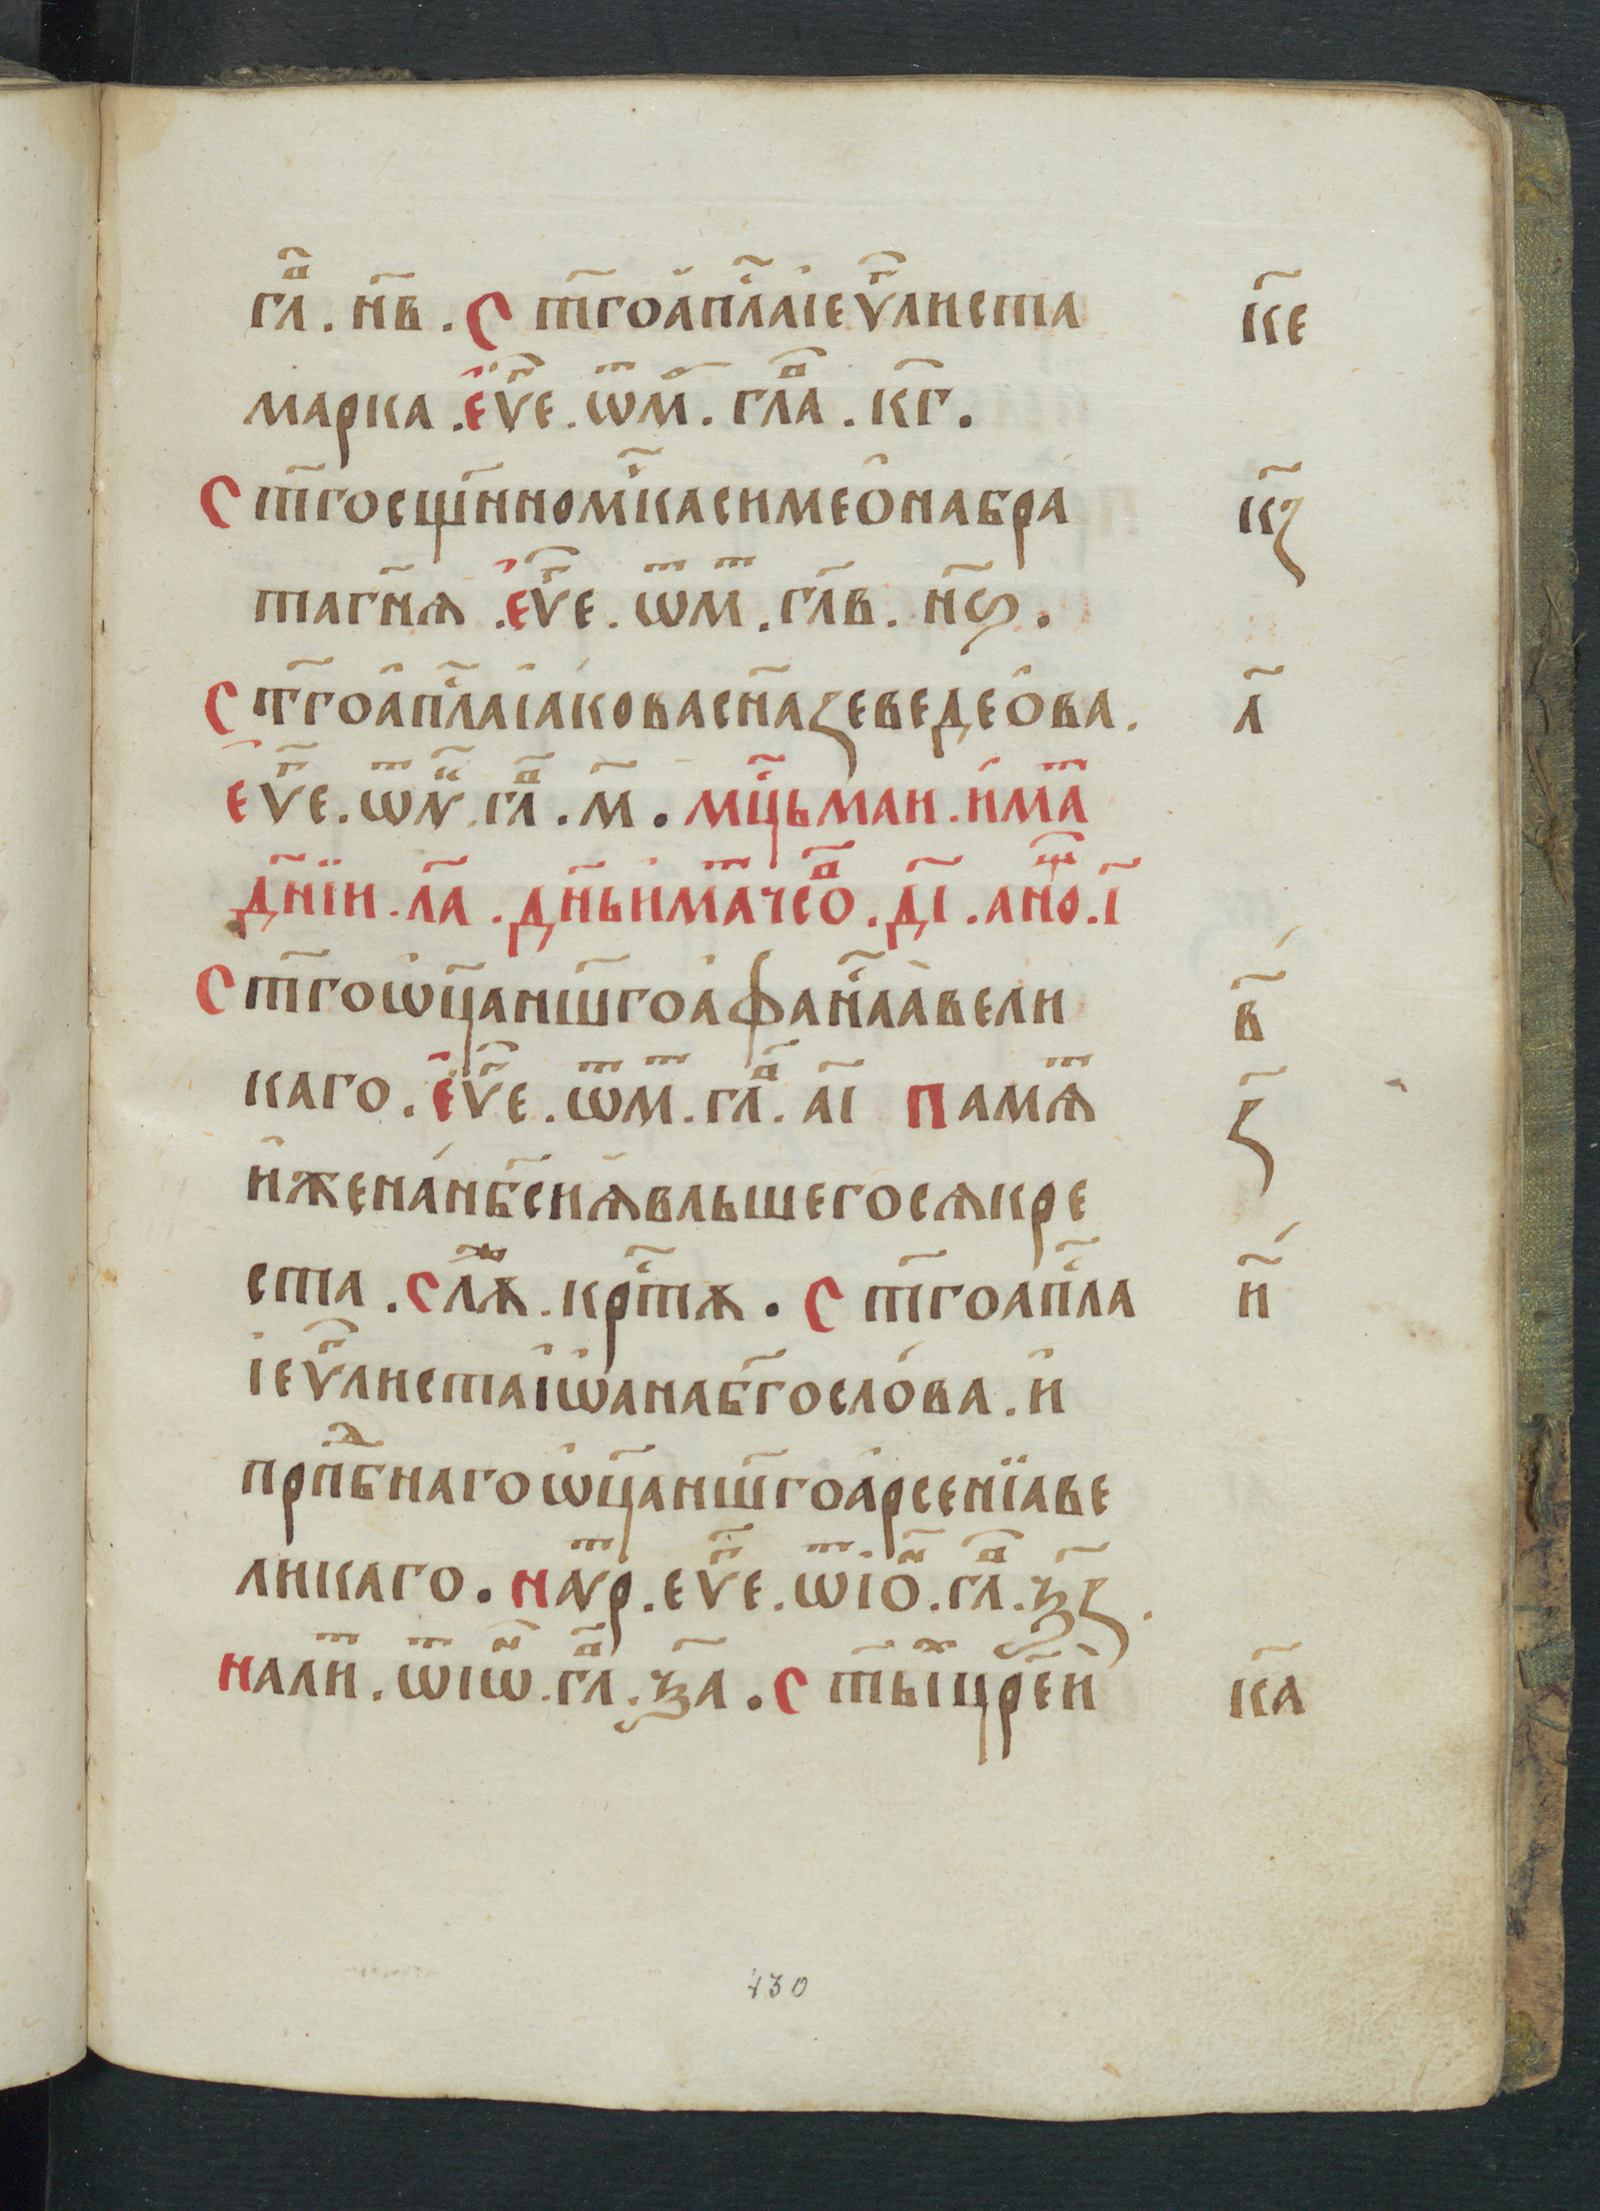 гл҃в . н҃в . С т҃гоа҆пⷭ҇лаі҆еѵⷢ҇листа к҃е
марка . е҆ѵⷢ҇е . ѿ м . глⷡ҇а . к҃г .
Ст҃госщ҃нномⷱ҇касимео̑набра к҃з
таг҃нѧ . е҆ѵⷢ҇е . ѿ мⷮ . гл҃в . н҃ѕ .
Ст҃гоа҆пⷭ҇лаі҆а́ковас҃назеведео̑ва . л҃
Еѵⷢ҇е . ѿ лꙋⷦ҇ . глⷡ҇ . м҃ . мцⷭ҇ьмаи . и҆маⷮ
д҃ніи . л҃а . д҃ньи҆маⷮчсоⷡ҇ . д҃і . анощⷪ҇ . і҃
Ст҃гоѡ҆ц҃анш҃гоа҆фанⷭ҇лавели в҃
каго . е҆ѵⷢ҇е . ѿ мⷮ . глⷡ҇ . а҃і Памѧⷮ з҃
и҆женан҃бсиꙗ҆вльшегосѧкре
ста . Слѧⷤ . крⷭ҇тѧ . С т҃гоапⷭ҇ла и҃
і҆еѵⷢ҇листаі҆ѡ҆анаб҃гослова . и҆
прпⷣбнагоѡ҆ц҃анш҃гоа҆рсеніаве
ликаго . Наꙋⷮр . еѵⷢ҇е . ѿ іоⷩ҇ . глⷡ҇ . ѯ҃з .
Налиⷮ . ѿ іѡⷩ҇ . глⷡ҇ . ѯ҃а . С т҃ыⷯцр҃еи к҃а
430